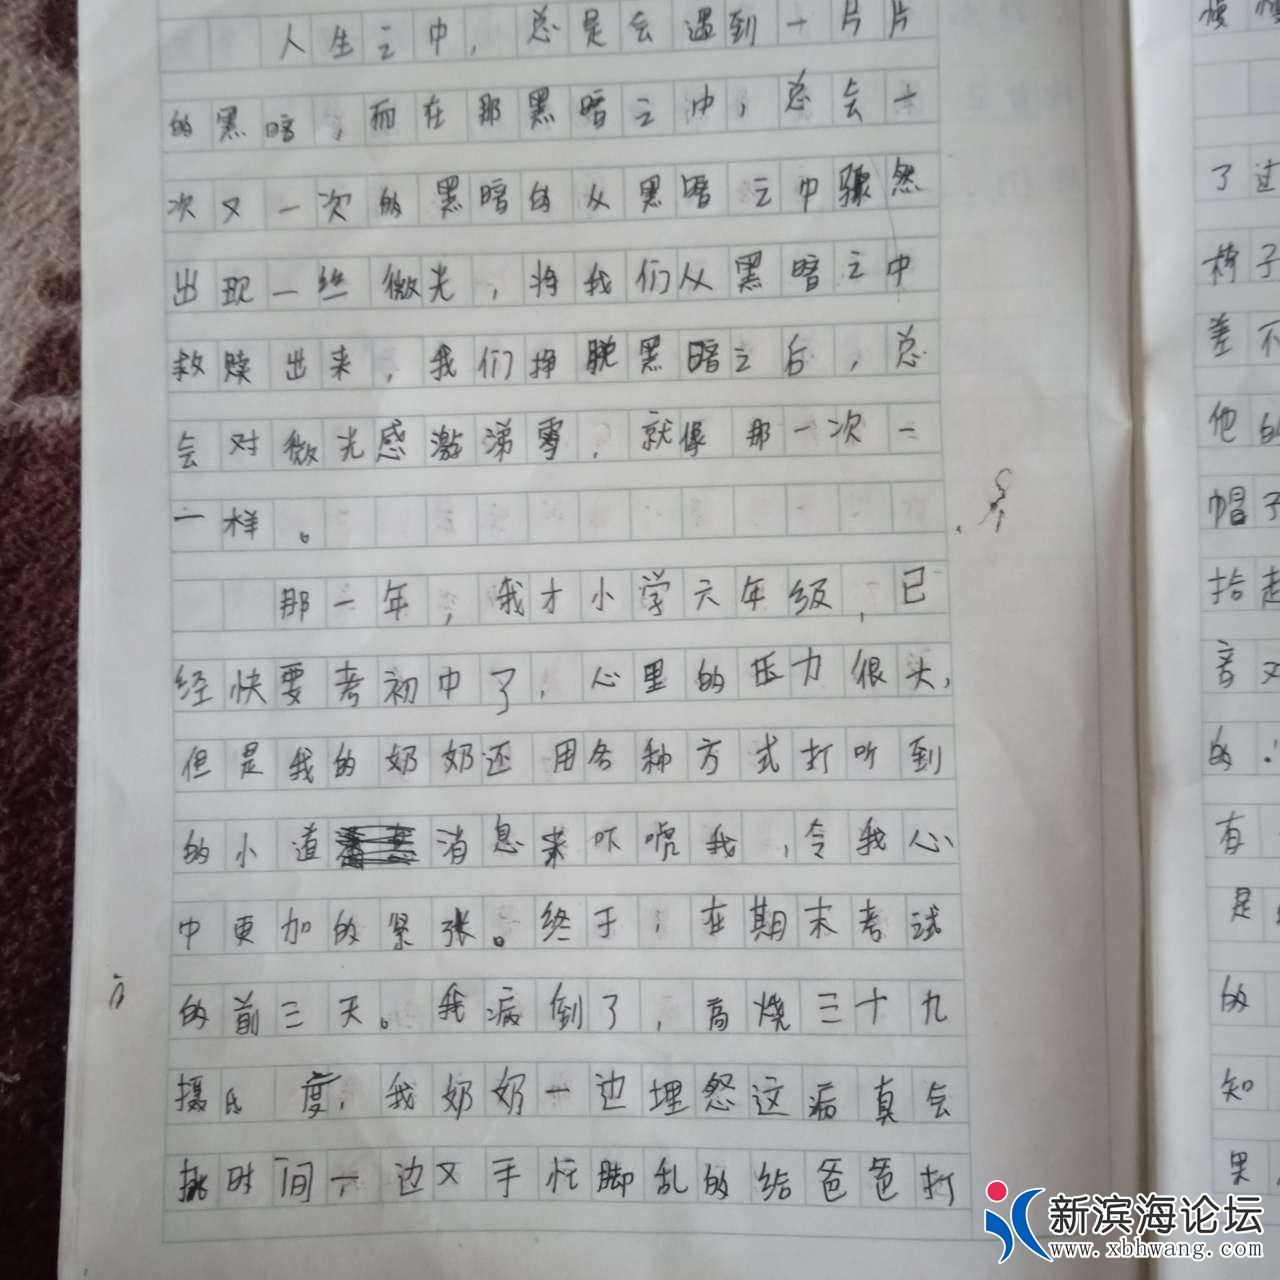 人生之中，总是会遇到一片片
的黑暗，而在那黑暗之中，总会一
次又一次的黑暗的从黑暗之中骤然
出现一丝微光，将我们从黑暗之中
救赎出来，我们挣脱黑暗之后，总
会对微光感激涕零，就像那一次一
一样。
那一年，我才小学六年级，已
经快要考初中了，心里的压力很大，
但是我的奶奶还用各种方式打听到
的小道消息来吓唬我，令我心
中更加的紧张。终于，在期末考试
的前三天。我病倒了，高烧三十九
摄氏度，我奶奶一边埋怨这病真会
挑时间一边又手忙脚乱的给爸爸打
了过
椅子
差不
他的
帽子
抬起
音又
的.
有
是
的
知
果
新滨海论坛
www.xbhwang.com